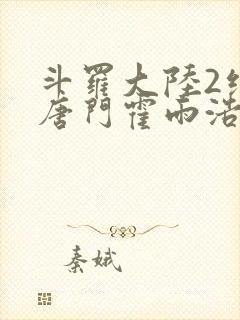 斗羅大陸2
唐門霍雨浩
秦娥